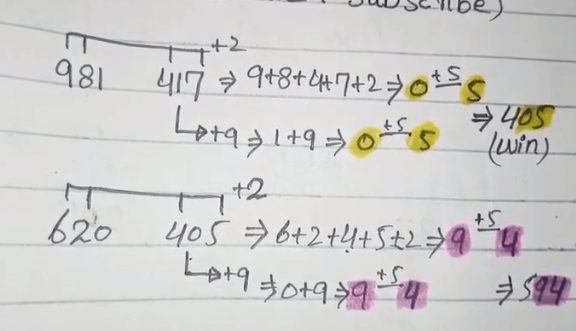 Subscribe)
+2
981 417 ⇒ 9+8+4+7+2 ⇒ 0 +5 5
⇒ 405
↳+9 ⇒ 1+9 ⇒ 0 +5 5
(win)
+2
620 405 ⇒ 6+2+4+5+2 ⇒ 9 +5 4
↳+9 ⇒ 0+9 ⇒ 9 +5 4 ⇒ 594